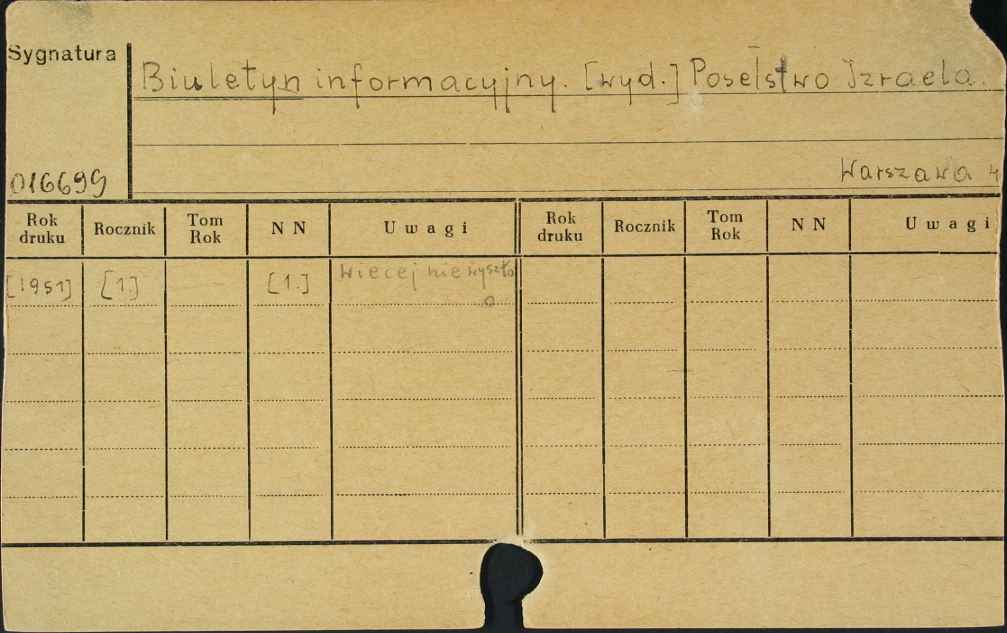 Sygnatura
Biuletyn informacyjny. [wyd.] Poselstwo Izraela.
016699
Warszawa 4
Rok druku Rocznik Tom Rok N N Uwagi Rok druku Rocznik Tom Rok N N Uwagi
[1951] [1] [1.] Więcej nie wyszło